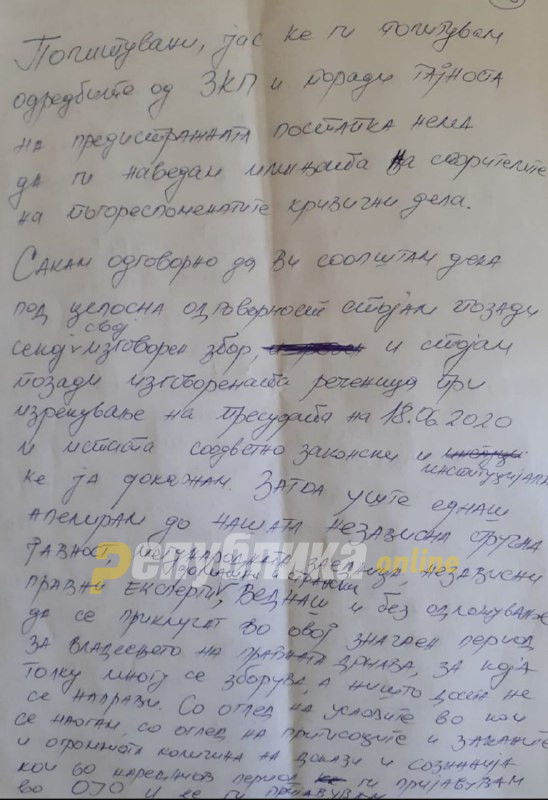 Почитувани, јас ке ги почитувам
одредбите од ЗКП и поради тајноста
на предистражната постапка нема
да ги наведам имињата на сторителите
на погореспоменатите кривични дела.
Сакам одговорно да Ви соопштам дека
под целосна одговорност стојам позади
секој свој изговорен збор, и стојам
позади изговорената реченица при
изрекување на пресудата на 18.06.2020
и истата соодветно законски и институционално
ке ја докажам. Затоа уште еднаш
апелирам до нашата независна стручна
јавност, меѓународната заедница независни
правни експерти домашни странски, веднаш и без одложување
да се приклучат во овој значаен период
за владеењето на правната држава, за која
толку многу се зборува, а ништо доста не
се направи. Со оглед на условите во кои
се наоѓам, со оглед на притисоците и заканите
и огромната количина на докази и сознанија
кои во наредниов период ги пријавувам
во ОЈО и ке ги
Република online